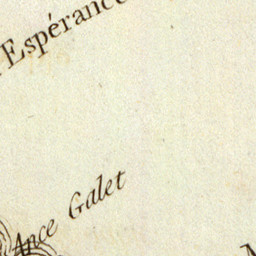 l'Espérance
Ance Galet